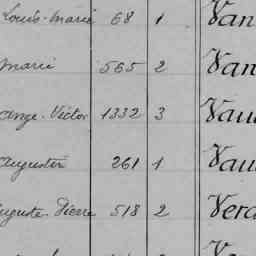 Louis-Marie 68 1 Van
Marie 565 2 Van
ange-Victor 1332 3 Vau
augustin 261 1 Vau
uguste-Pierre 518 2 Vera